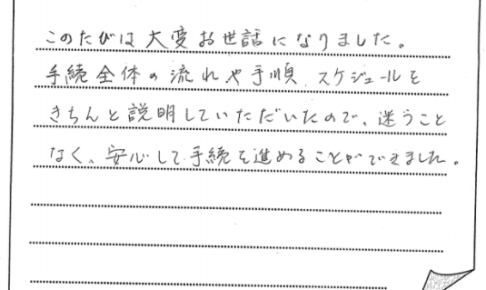 このたびは大変お世話になりました。
手続全体の流れや手順、スケジュールを
きちんと説明していただいたので、迷うこと
なく、安心して手続を進めることができました。